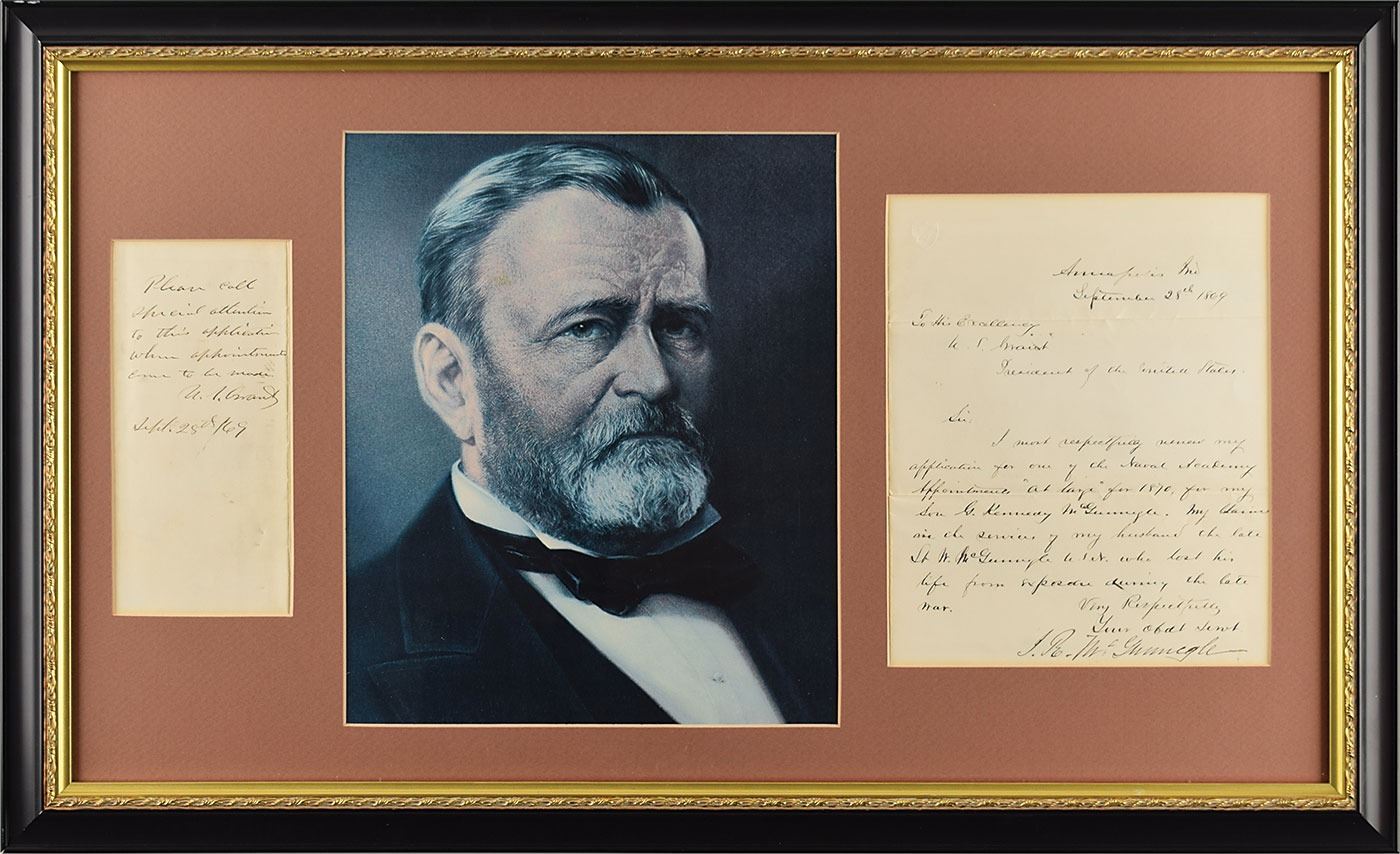 Please call
special attention
to this application
when appointments
come to be made.
U.S. Grant
Sept. 28th /69
Annapolis Md
September 28th 1869
To His Excellency
U. S. Grant
President of the United States.
Sir,
I most respectfully renew my
application for one of the Naval Academy
Appointments "At large" for 1870, for my
Son G. Kennedy McGunnegle. My claim
is the services of my husband the late
Lt W. McGunnegle U.S.N. who lost his
life from exposure during the late
war.
Very Respectfully
Your Obdt Servt
McGunnegle